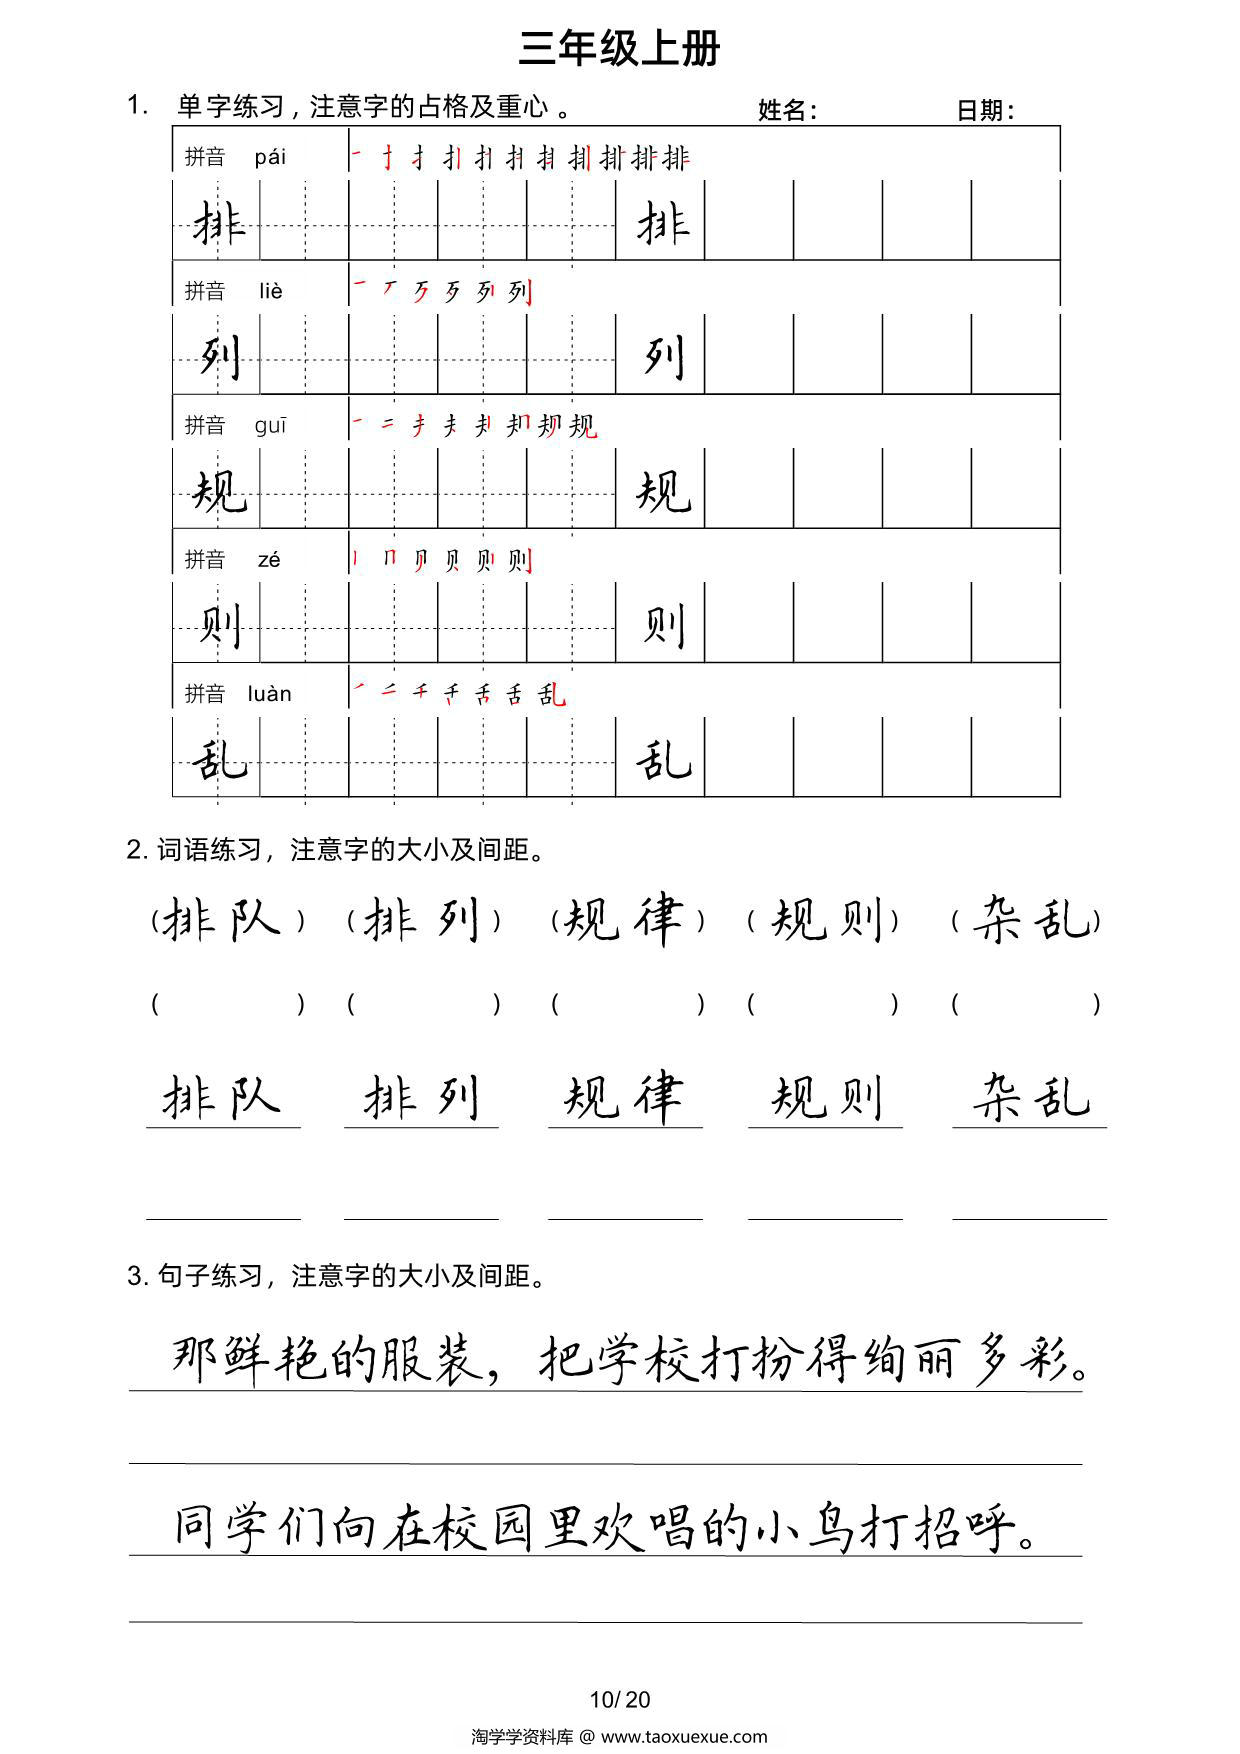 三年级上册
1. 单字练习，注意字的占格及重心。 姓名： 日期：
拼音 pái
排 排
拼音 liè
列 列
拼音 guī
规 规
拼音 zé
则 则
拼音 luàn
乱 乱
2. 词语练习，注意字的大小及间距。
（排队） （排列） （规律） （规则） （杂乱）
（ ） （ ） （ ） （ ） （ ）
排队 排列 规律 规则 杂乱
3. 句子练习，注意字的大小及间距。
那鲜艳的服装，把学校打扮得绚丽多彩。
同学们向在校园里欢唱的小鸟打招呼。
10/20
淘学学资料库 @ www.taoxuexue.com